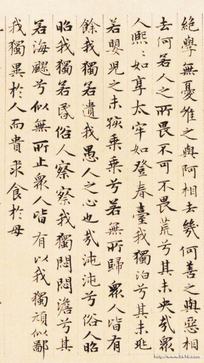 絶學無憂唯之與阿相去幾何善之與惡相
去何若人之所畏不可不畏荒兮其未央哉衆
人熙熙如享太牢如登春臺我獨泊兮其未兆
若嬰兒之未孩乘乘兮若無所歸衆人皆有
餘我獨若遺我愚人之心也哉沌沌兮俗昭
昭我獨若昏俗人察察我獨悶悶澹兮其
若海飂兮似無所止衆人皆有以我獨頑似鄙
我獨異於人而貴求食於母